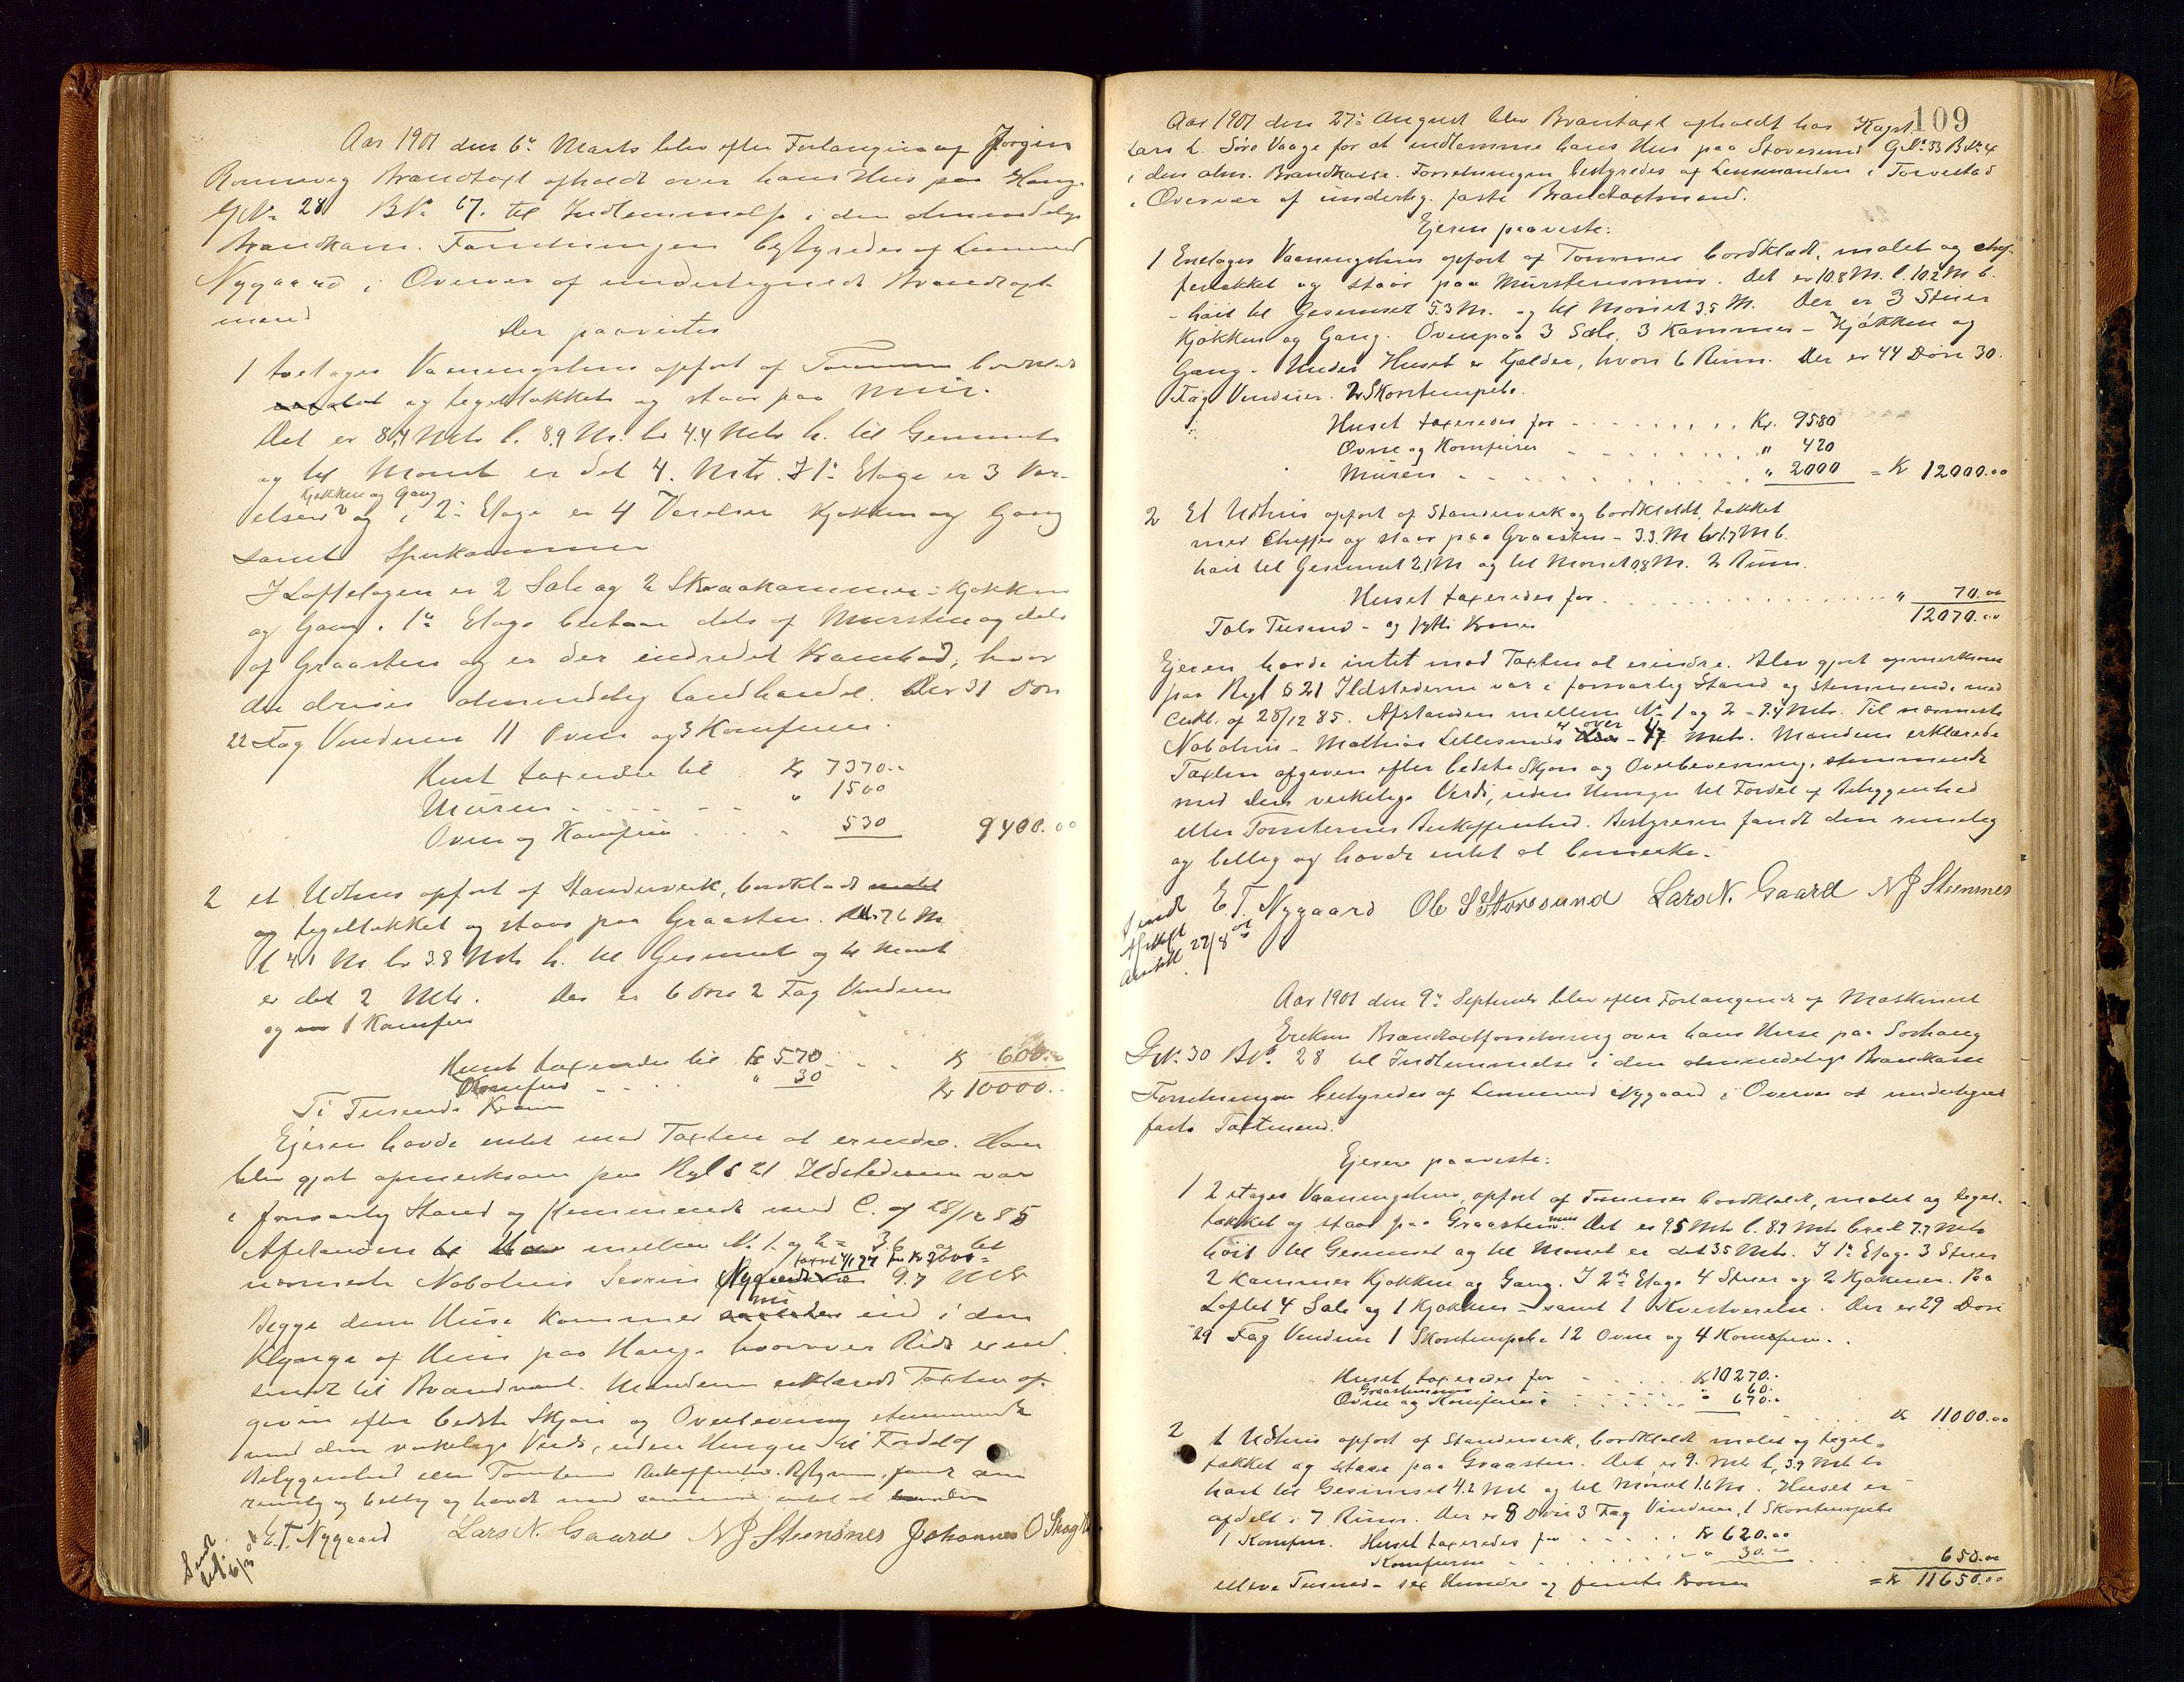 Aar 1901 den 6te Marts blev efter Forlangende af Jørgin
Rønnevig Brandtaxt afholdt over hans Hus paa Hauge
GNo 28 BNo 67. til Indlemmelse i den almindelige
Brandkasse. Forretningen bestyredes af Lensmand
Nygaard i Overvær af undertegnede Brandtaxt
mænd
Der paavistes
1 toetages Vaaningshus opført af Tømmer bordklædt
og tegeltækket og staar paa Mur.
Det er 8,4 Mtr l. 8.9 M. br 4.4 Mtr h. til Gesimset
og til Mønet er det 4. Mtr. I 1ste Etage er 3 Vær-
Kjøkken og Gang
elser og i 2den Etage er 4 Værelser Kjøkken og Gang
samt Spiskammer
I Loftetagen er 2 Sale og 2 Skraakammer - Kjøkken
og Gang. 1ste Etage bestaar dels af Mursten og dels
af Graasten og er der indredet Krambod, hvor
der drives almindelig Landhandel. Der 31 Døre
22 Fag Vinduer 11 Ovne og 3 Komfurer.
Huset taxeredes til Kr 7370..
Muren . . . . . . " 1500
Ovne og Komfur . . . . 530 9400.00
2 et Udhus opført af Standerverk, bordklædt malet
og tegeltækket og staar paa Graasten. 7.6 M
l 4.1 M br 3.8 Mtr h. til Gesimset og til Mønet
er det 2 Mtr. Der er 6 Døre 2 Fag Vinduer
og 1 Komfur
Huset taxeredes til Kr 570 . . . Kr 600.00
Komfur . . . . " 30 Kr 10000..
Ti Tusende Kroner
Ejeren havde intet mod Taxten at erindre. Han
blev gjort opmerksom paa Rgl § 21 Ildstederne var
i forsvarlig Stand og stemmende med C. af 28/12 85
Afstanden mellem No 1 og 2 = 3.6 og til
taxt 4/1 97 for Kr 3600 =
nærmeste Nabohus Sevrin Nygaard 9.7 Mtr
Begge dem Huse kommer ind i den
Klynge af Huse paa Hauge hvorover Rids er ind
sendt til Brandvæsnt. Mændene erklærede Taxten af-
given efter bedste Skjøn og Overbevisning stemmende
med den virkelige Værdi, uden Hensyn til Fordel af
Beliggenhed eller Tomtens Beskaffenhed. Bestyreren fandt den
rimelig og billig og havde med samme intet at bemerke
E. T. Nygaard Lars N. Gaard N J Steensnes Johannes O Skog
Sendt
6/3 01
109
Aar 1901 den 27de August blev Brantaxt afholdt hos Kapt.
Lars L. Søre Vaage for at indlemme hans Hus paa Storesund GNo 33 BNo 4
i den alm. Brandkasse. Forretningen bestyredes af Lensmanden i Torvestad
i Overvær af undertg. faste Brandtaxtmænd.
Ejeren paaviste:
1 Enetages Vaaningshus opført af Tømmer bordklædt, malet og chef-
fertækket og staar paa Murstensmur. Det er 10.8 M. l. 10.2 M b.
- høit til Gesimset 5.3 M. og til Mønet 3.5 M. Der er 3 Stuer
Kjøkken og Gang. Ovenpaa 3 Sale, 3 Kammer - Kjøkken og
Gang - Under Huset er Kjelder, hvori 6 Rum. Der er 44 Døre 30
Fag Vinduer. 2 Skorstenspiber.
Huset taxeredes for . . . . . . . . Kr. 9580
Ovne og Komfurer . . . . . . . . " 420
Muren . . . . . . . . . . . " 2000 = Kr 12000.00
2 Et Udhus opført af Standerverk og bordklædt, tækket
med Cheffer og staar paa Graasten - 3.3 M l 1.7 M b.
høit til Gesimset 2.1 M og til Mønet 0.8 M. 2 Rum.
Huset taxeredes for . . . . . . . . . . . " 70.00
Tolv Tusend - og sytti Kroner 12070.00
Ejeren havde intet mod Taxten at erindre. Blev gjort opmerksom
paa Rgl § 21 Ildstederne var i forsvarlig Stand og stemmende med
Cirkl. af 28/12 85. Afstanden mellem No 1 og 2 - 9.4 Mtr. Til nærmeste
Nabohus - Mathias Lillesunds er over 47 Mtr. Mændene erklærede
Taxten afgiven efter bedste Skjøn og Overbevisning, stemmende
med den virkelige Værdi, uden Hensyn til Fordel af Beliggenhed
eller Tomternes Beskaffenhed. Bestyreren fandt den rimelig
og billig og havde intet at bemerke.
E. T. Nygaard Ole S Storesund Lars N. Gaard N J Steensnes
Sendt
Afskrift
27/8 01
Aar 1901 den 9de September blev efter Forlangende af Maskinist
Eriksen Brandtaxtforretning over hans Huse paa Sørhaug
GNo. 30 BNo. 28 til Indlemmelse i den almindelige Brandkasse
Forretningen bestyredes af Lensmand Nygaard i Overvær af undertegnet
faste Taxtmænd.
Ejeren paaviste:
1 2 etages Vaaningshus, opført af Tømmer bordklædt, malet og tegel-
tækket og staar paa Graastensmur Det er 9.5 Mtr l. 8.9 Mtr bred 7.7 Mtr
høit til Gesimset og til Mønet er det 3.5 Mtr. I 1ste Etage 3 Stuer
2 Kammer Kjøkken og Gang. I 2den Etage 4 Stuer og 2 Kjøkkener. Paa
Loftet 4 Sale og 1 Kjøkken - samt 1 Kvistværelse. Der er 29 Døre
29 Fag Vinduer 1 Skorstenspibe 12 Ovne og 4 Komfurer.
Huset taxeredes for . . . . . Kr 10270..
Graastensmur . . . . . . " 60.
Ovne og Komfurer . . . . . . " 670.. Kr 11000.00
2 1 Udhus opført af Standerverk, bordklædt malet og tegel-
tækket og staar paa Graasten. Det er 9. Mtr l, 3.9 Mtr br
høit til Gesimset 4.2 Mtr og til Mønet 1.6 M. Huset er
afdelt i 7 Rum. Der er 8 Døre 3 Fag Vinduer, 1 Skorstenspibe
1 Komfur. Huset taxeredes for . . . . . Kr 620.00
Komfuren . . . . . . . . " 30.00 650.00
elleve Tusend - sex Hundre og femti Kroner = Kr 11650.00